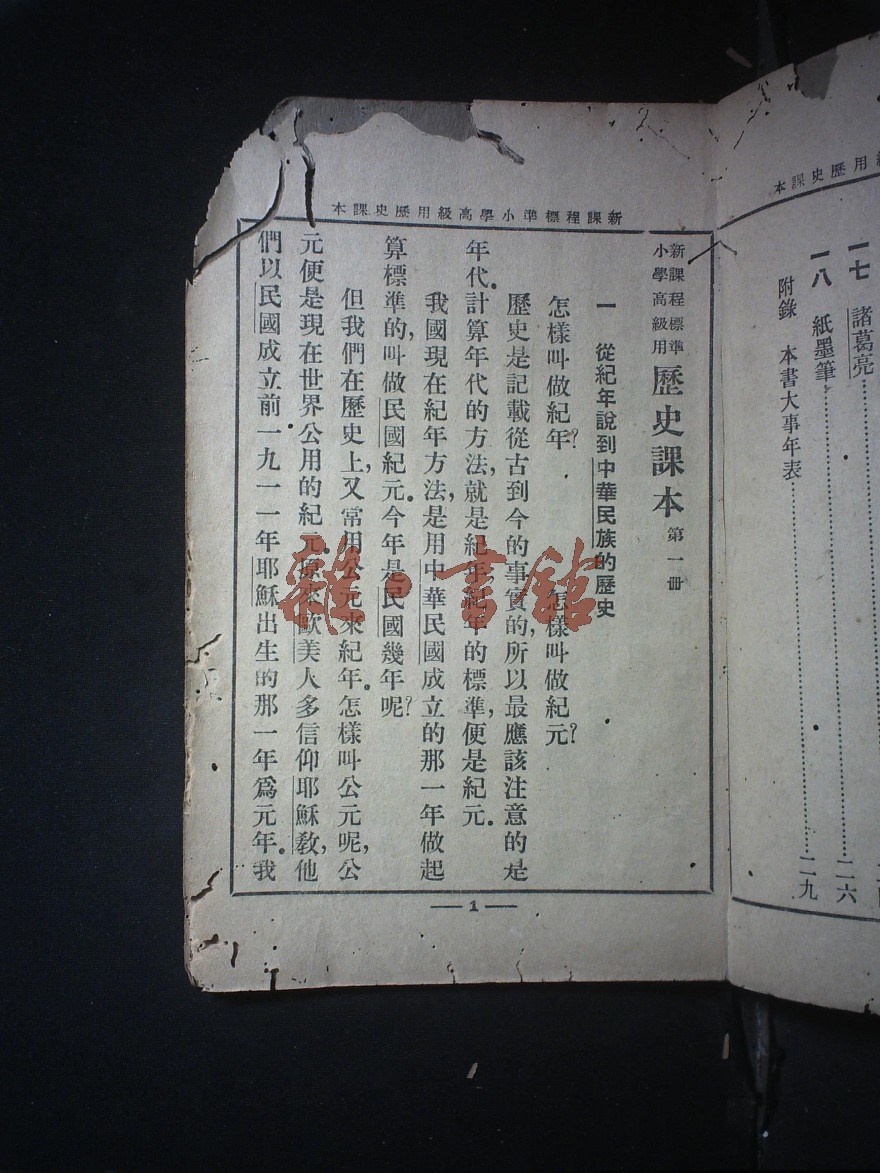 一七　諸葛亮……
一八　紙墨筆……二六
附錄　本書大事年表……二九
新課程標準小學高級用歷史課本
新課程標準
小學高級用
歷史課本 第一冊
一　從紀年說到中華民族的歷史
怎樣叫做紀年？　怎樣叫做紀元？
歷史是記載從古到今的事實的，所以最應該注意的是
年代。計算年代的方法，就是紀年；紀年的標準，便是紀元。
我國現在紀年方法，是用中華民國成立的那一年做起
算標準的，叫做民國紀元。今年是民國幾年呢？
但我們在歷史上，又常用公元來紀年。怎樣叫公元呢，公
元便是現在世界公用的紀元。原來歐美人多信仰耶穌教，他
們以民國成立前一九一一年耶穌出生的那一年爲元年。我
— 1 —